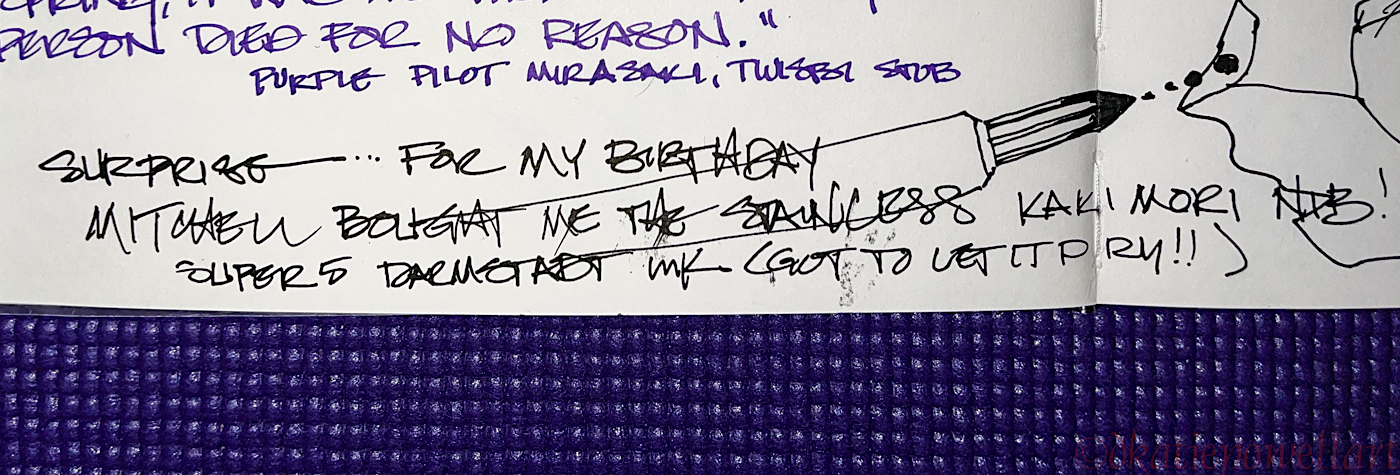 SPRING, IT WAS
PERSON DIED FOR NO REASON."
PURPLE PILOT MIRASAKI, TWISBI STUB
SURPRISE ... FOR MY BIRTHDAY
MITCHELL BOUGHT ME THE STAINLESS KAKIMORI NIB!
SUPER5 DARMSTADT INK (GOT TO LET IT DRY!!)